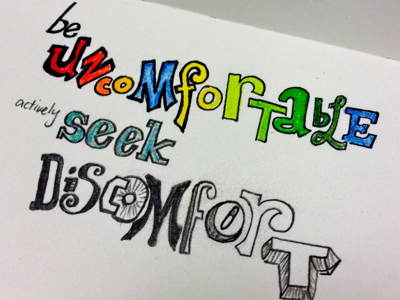 be
UNCOMfORTabLE
actively
seek
DiSCOMfORT